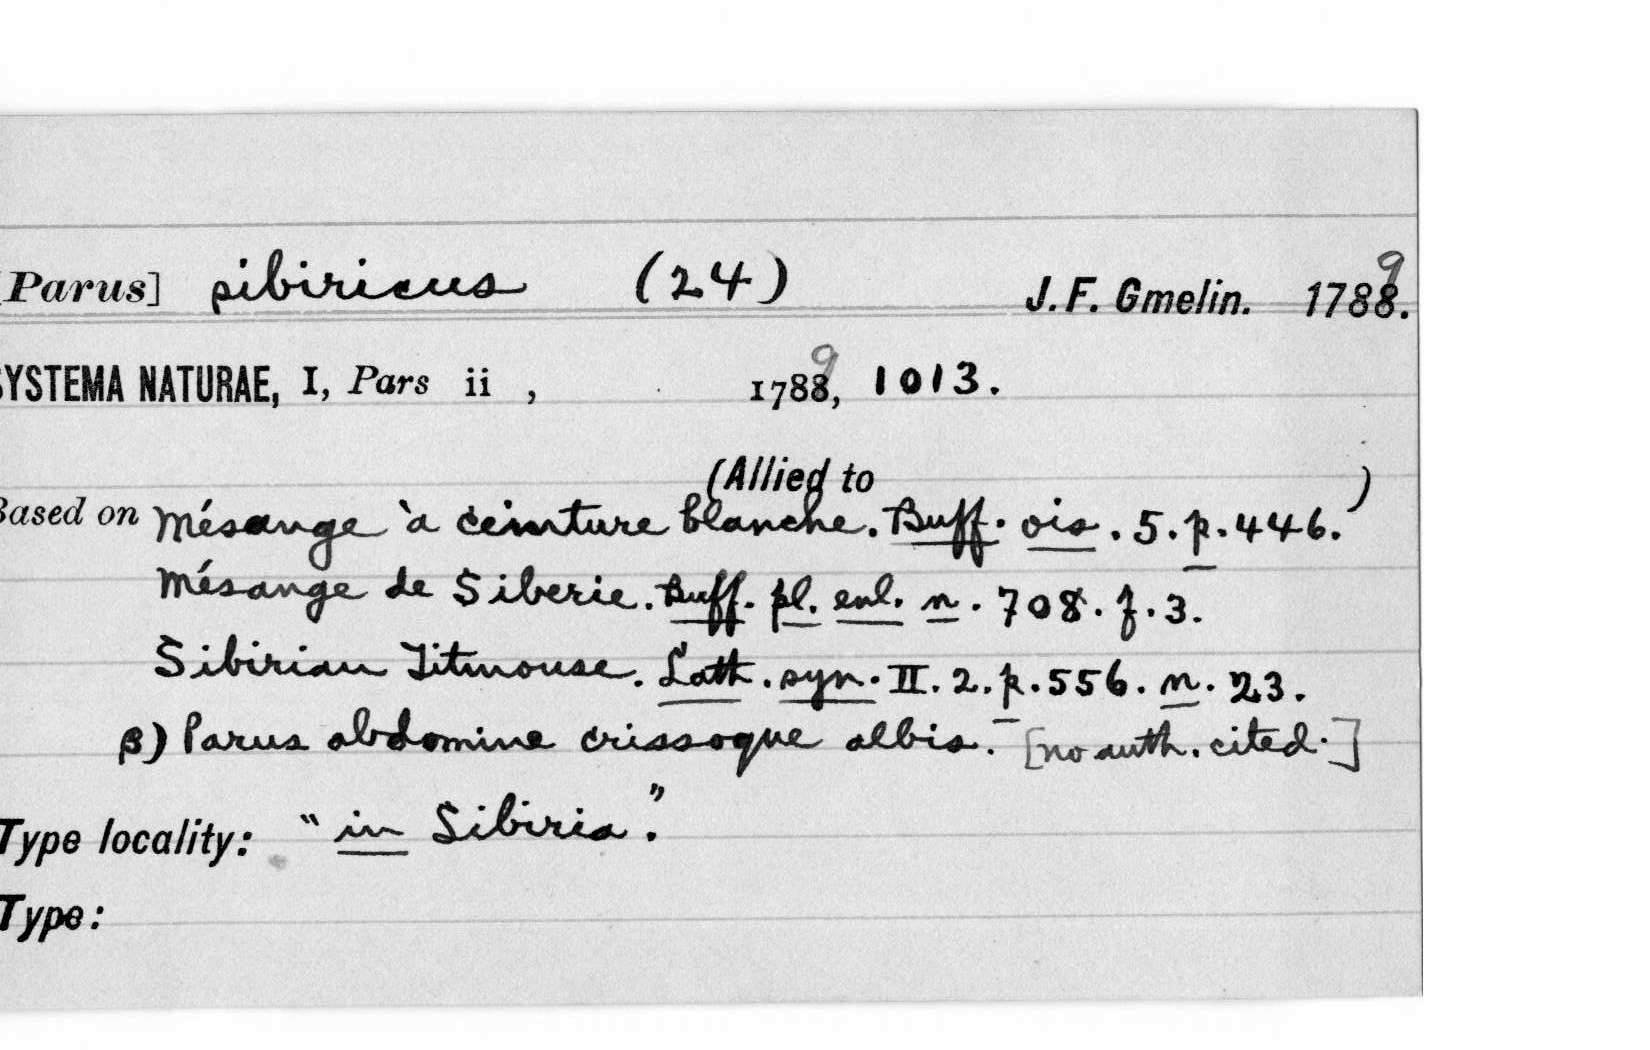 [Parus] sibiricus (24) J. F. Gmelin. 1788. 9
SYSTEMA NATURAE, I, Pars ii , 1788, 9 1013.
(Allied to )
Based on Mésange à ceinture blanche. Buff. ois. 5. p. 446.
Mésange de Siberie. Buff. pl. enl. n. 708. f. 3.
Sibirian Titmouse. Lath. syn. II. 2. p. 556. n. 23.
β) Parus abdomine crissoque albis. [no auth. cited.]
Type locality: "in Sibiria."
Type: